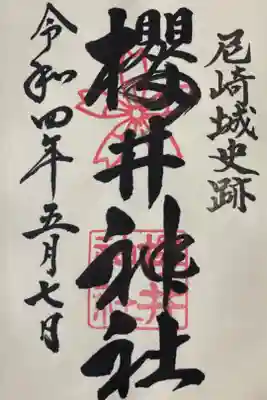 尼崎城史跡
櫻井神社
令和四年五月七日
櫻井
神社